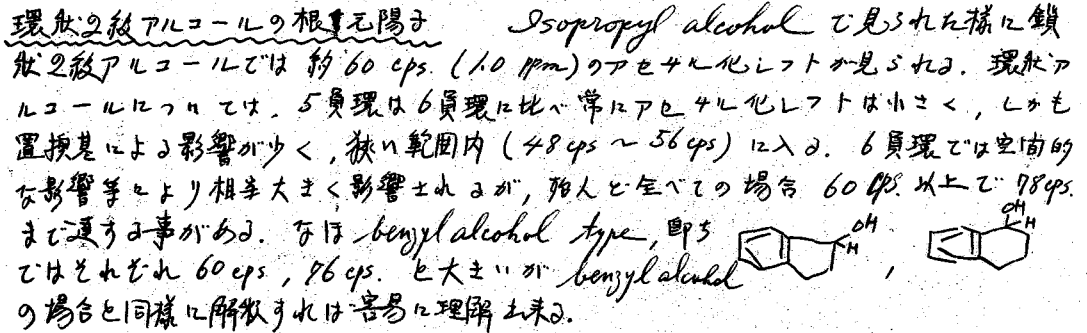 環状2級アルコールの根元陽子 Isopropyl alcohol で見られた様に鎖
状2級アルコールでは約60 cps. (1.0 ppm)のアセチル化シフトが見られる. 環状ア
ルコールについては, 5員環は6員環に比べ常にアセチル化シフトは小さく, しかも
置換基による影響が少く, 狭い範囲内 (48 cps 〜 56 cps) に入る. 6員環では空間的
な影響等により相当大きく影響されるが, 殆んど全べての場合 60 cps. 以上で 78 cps.
まで達する事がある. なほ benzyl alcohol type, 即ち OH H , OH H
ではそれぞれ 60 cps, 76 cps. と大きいが benzyl alcohol
の場合と同様に解釈すれば容易に理解出来る.